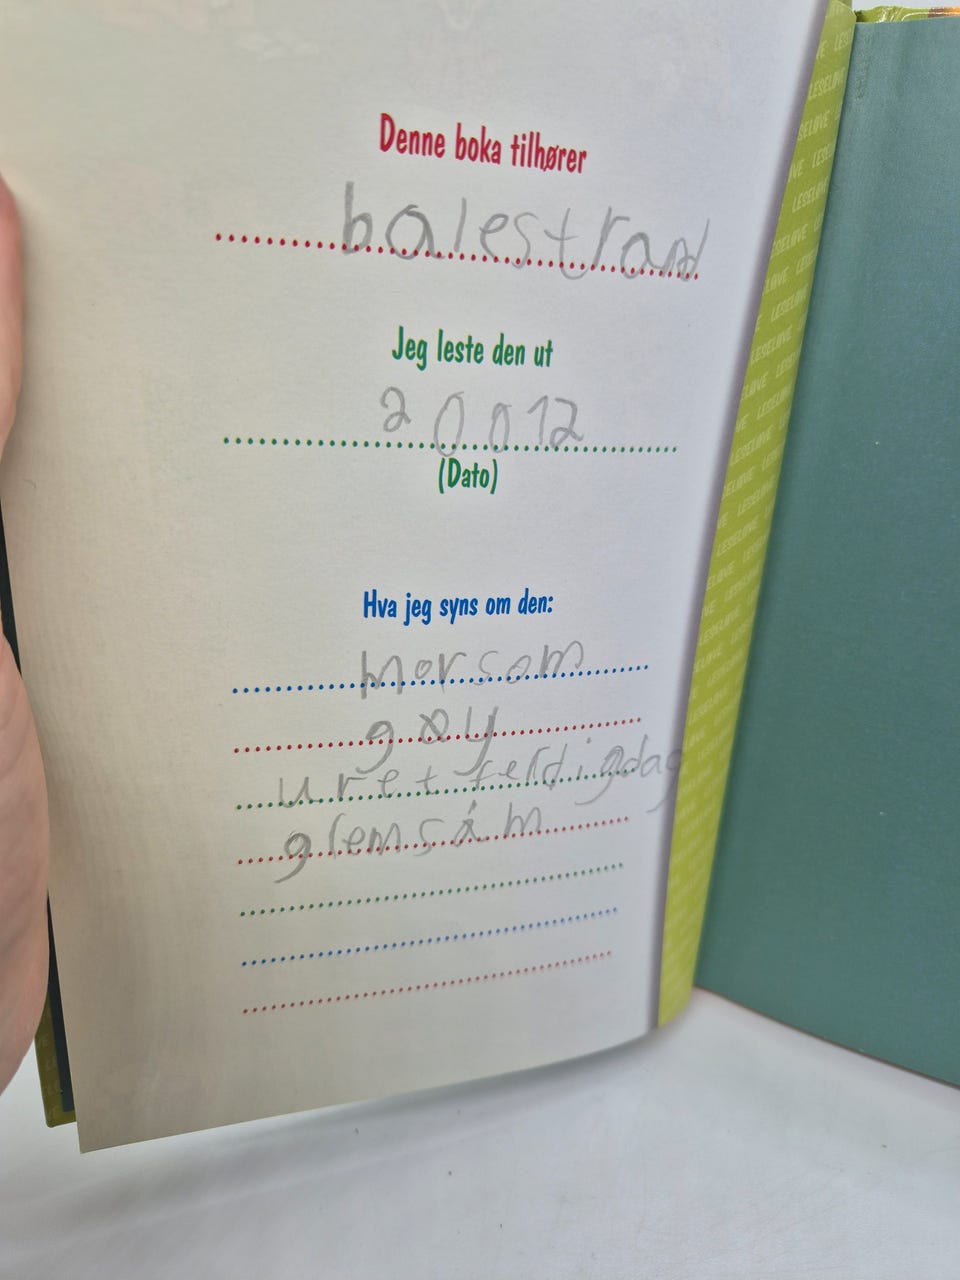 Denne boka tilhører
balestrand
Jeg leste den ut
20012
(Dato)
Hva jeg syns om den:
morsom
gøy
uret ferdigdag
glemsåm
LESELØVE LESELØVE LESELØVE